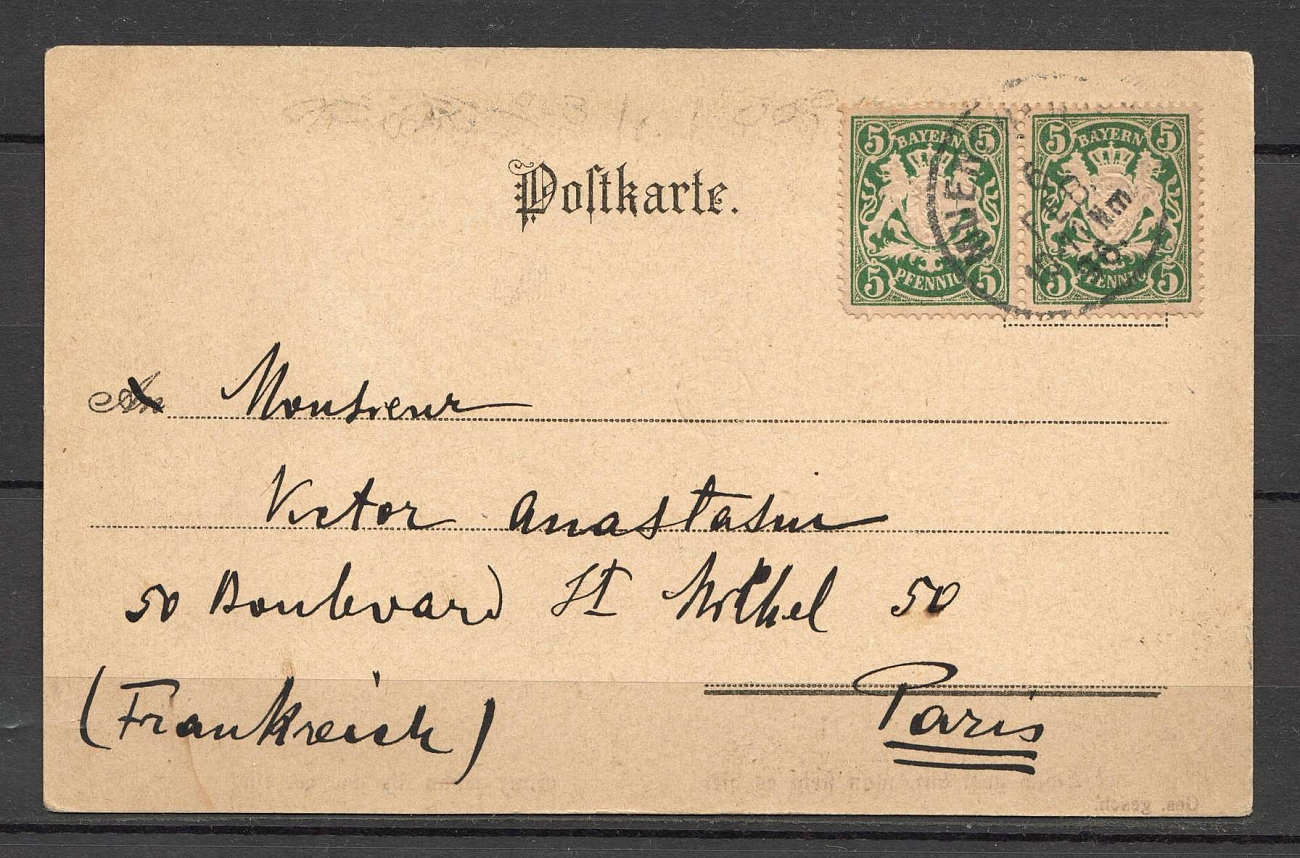 Postkarte.
5 BAYERN 5
5 PFENNIG 5
5 BAYERN 5
5 PFENNIG 5
An Monsieur
Victor Anastasiu
50 Boulevard St Michel 50
Paris
(Frankreich)
Ges. gesch.